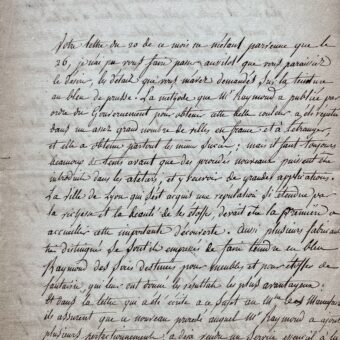 Votre lettre du 20 de ce mois ne m'étant parvenue que le
26, je n'ai pu vous faire passer aussitôt que vous paraissiez
le désirer, les détails que vous m'avez demandés sur la teinture
au bleu de prusse. La méthode que Mr Raymond a publiée par
ordre du Gouvernement pour obtenir cette belle couleur, a été
dans un assez grand nombre de villes, en france et à l'étranger,
et elle a obtenu partout le même succès; mais il faut toujours
beaucoup de tems avant que des procédés nouveaux puissent être
introduits dans les ateliers, et y recevoir de grandes applications.
La ville de Lyon qui s'est acquis une réputation si étendue par
la richesse et la beauté de ses étoffes, devait être la première à
accueillir cette importante découverte. Aussi plusieurs fabricans
distingués se sont empressés de faire teindre en bleu
Raymond des soies destinées pour meubles et pour étoffes de
fantaisie, qui leur ont donné les résultats les plus avantageux.
dans la lettre qui a été écrite à ce sujet au
ils assurent que ce nouveau procédé auquel Mr Raymond a ajouté
plusieurs perfectionnements a déjà rendu un service essentiel à la